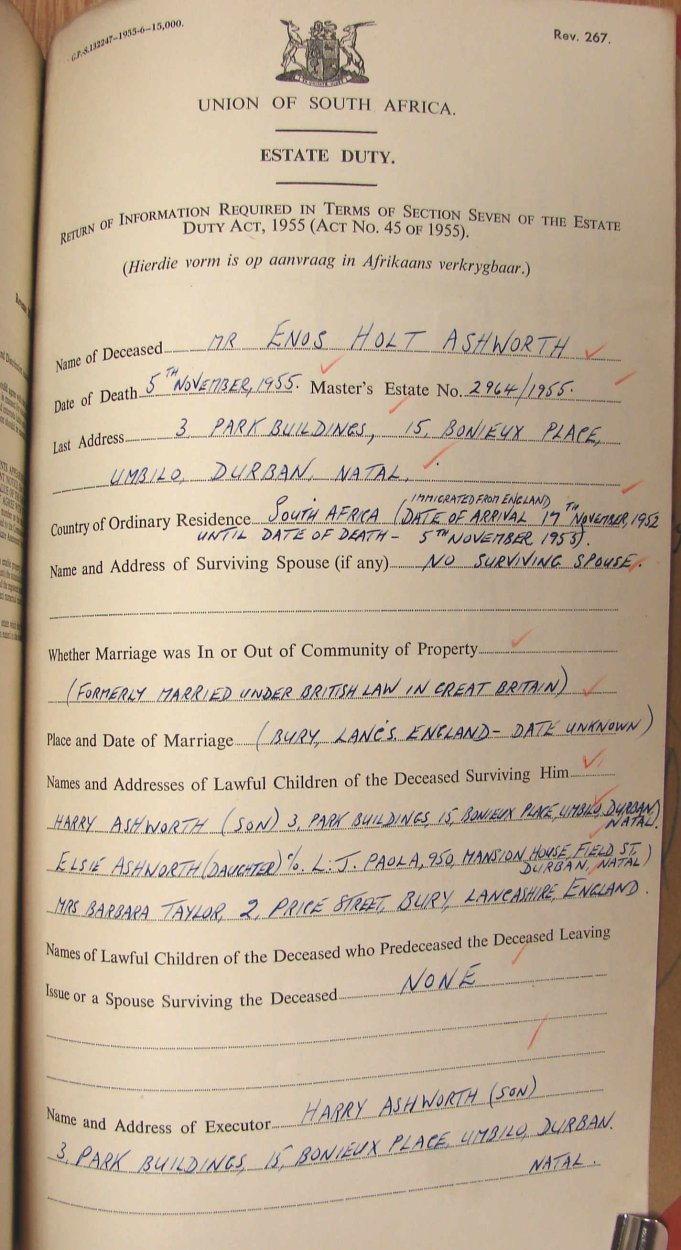 G.P.-S.132247-1955-6-15,000.
Rev. 267.
UNION OF SOUTH AFRICA.
ESTATE DUTY.
RETURN OF INFORMATION REQUIRED IN TERMS OF SECTION SEVEN OF THE ESTATE
DUTY ACT, 1955 (ACT NO. 45 OF 1955).
(Hierdie vorm is op aanvraag in Afrikaans verkrygbaar.)
Name of Deceased MR ENOS HOLT ASHWORTH
Date of Death 5TH NOVEMBER, 1955. Master's Estate No. 2964/1955.
Last Address 3, PARK BUILDINGS, 15, BONIEUX PLACE,
UMBILO, DURBAN, NATAL.
IMMIGRATED FROM ENGLAND
Country of Ordinary Residence SOUTH AFRICA (DATE OF ARRIVAL 17TH NOVEMBER, 1952
UNTIL DATE OF DEATH - 5TH NOVEMBER 1955).
Name and Address of Surviving Spouse (if any) NO SURVIVING SPOUSE.
Whether Marriage was In or Out of Community of Property
(FORMERLY MARRIED UNDER BRITISH LAW IN GREAT BRITAIN)
Place and Date of Marriage (BURY, LANCS. ENGLAND - DATE UNKNOWN)
Names and Addresses of Lawful Children of the Deceased Surviving Him
HARRY ASHWORTH (SON) 3, PARK BUILDINGS, 15, BONIEUX PLACE, UMBILO, DURBAN)
NATAL.
ELSIE ASHWORTH (DAUGHTER) c/o. L. J. PAOLA, 950, MANSION HOUSE, FIELD ST.
DURBAN, NATAL)
MRS BARBARA TAYLOR, 2, PRICE STREET, BURY, LANCASHIRE, ENGLAND.
Names of Lawful Children of the Deceased who Predeceased the Deceased Leaving
Issue or a Spouse Surviving the Deceased NONE
Name and Address of Executor HARRY ASHWORTH (SON)
3, PARK BUILDINGS, 15, BONIEUX PLACE, UMBILO, DURBAN.
NATAL.